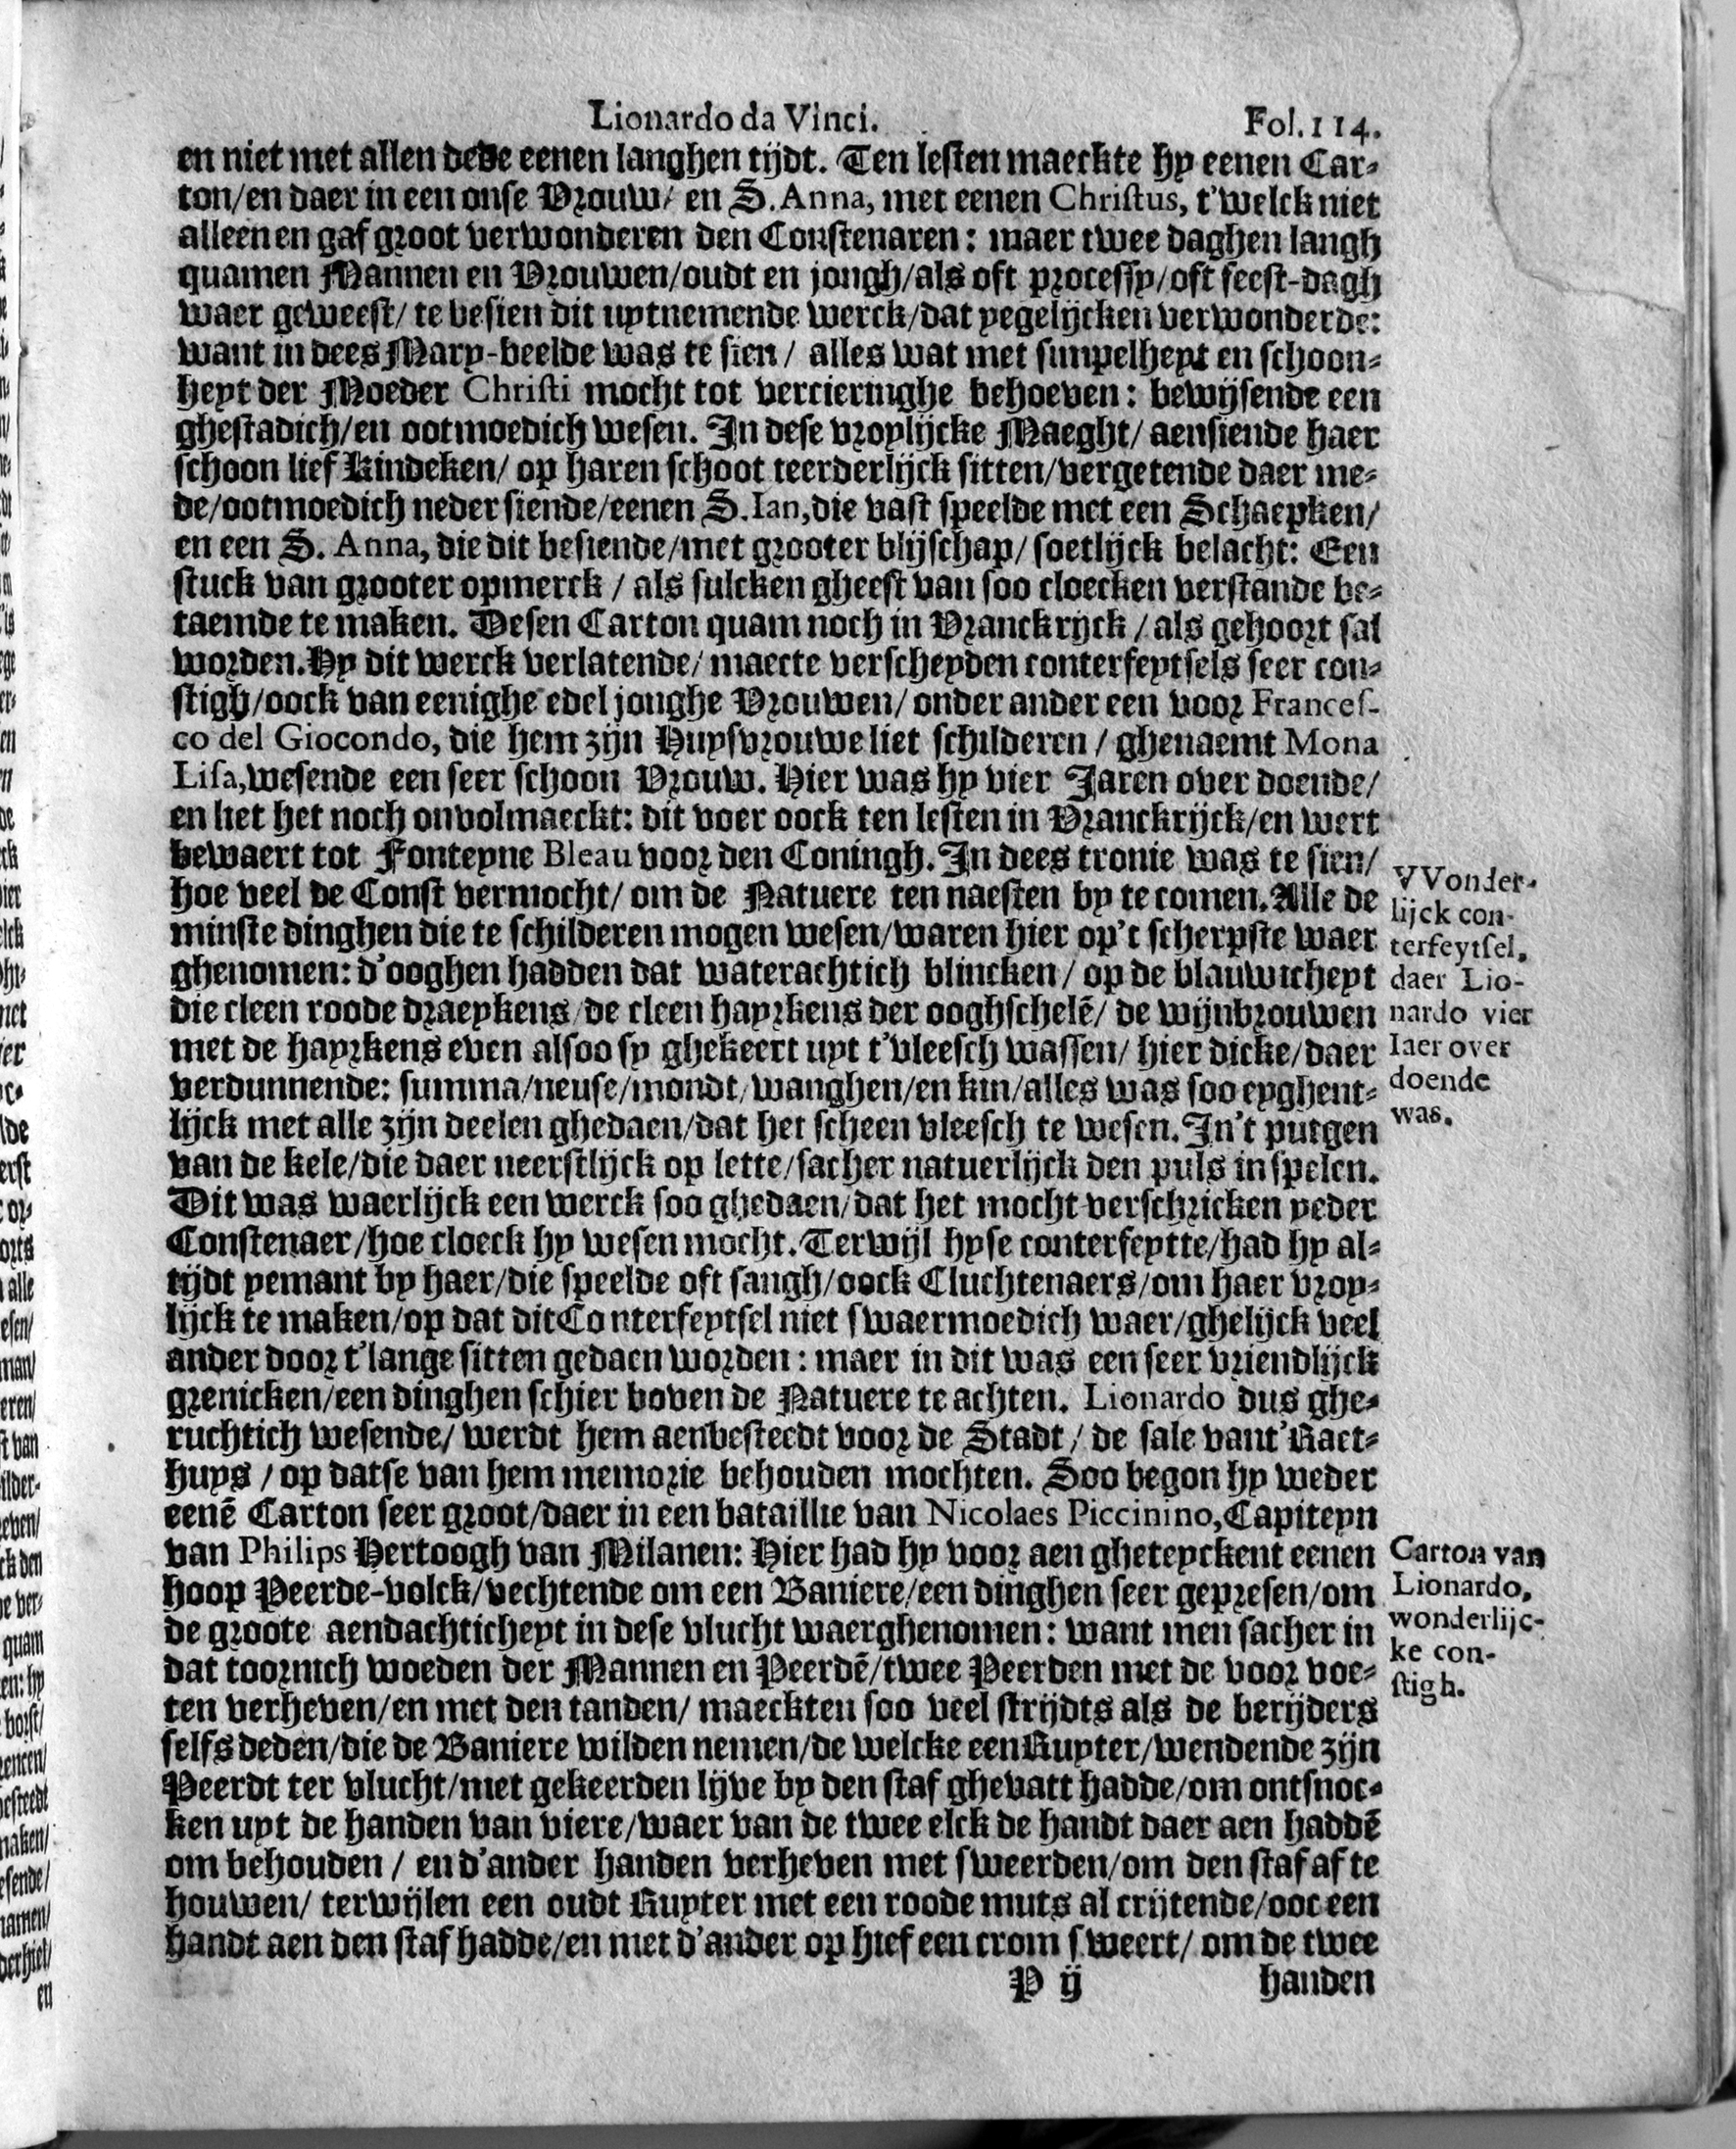 Lionardo da Vinci. Fol. 114.
en niet met allen dede eenen langhen tijdt. Ten lesten maeckte hy eenen Car-
ton/en daer in een onse Vrouw/ en S. Anna, met eenen Christus, t'welck niet
alleen en gaf groot verwonderen den Constenaren: maer twee daghen langh
quamen Mannen en Vrouwen/oudt en jongh/als oft processy/oft feest-dagh
waer geweest/ te besien dit uytnemende werck/dat yegelijcken verwonderde:
want in dees Mary-beelde was te sien/ alles wat met simpelheyt en schoon-
heyt der Moeder Christi mocht tot vercieringhe behoeven: bewijsende een
ghestadich/en ootmoedich wesen. In dese vroylijcke Maeght/ aensiende haer
schoon lief kindeken/ op haren schoot teerderlijck sitten/vergetende daer me-
de/ootmoedich neder siende/eenen S. Ian, die vast speelde met een Schaepken/
en een S. Anna, die dit besiende/met grooter blijschap/ soetlijck belacht: Een
stuck van grooter opmerck/ als sulcken gheest van soo cloecken verstande be-
taemde te maken. Desen Carton quam noch in Vranckrijck/ als gehoort sal
worden. Hy dit werck verlatende/ maecte verscheyden conterfeytsels seer con-
stigh/oock van eenighe edel jonghe Vrouwen/ onder ander een voor Frances-
co del Giocondo, die hem zijn Huysvrouwe liet schilderen/ ghenaemt Mona
Lisa, wesende een seer schoon Vrouw. Hier was hy vier Jaren over doende/
en liet het noch onvolmaeckt: dit voer oock ten lesten in Vranckrijck/en wert
bewaert tot Fonteyne Bleau voor den Coningh. In dees tronie was te sien/
hoe veel de Const vermocht/ om de Natuere ten naesten by te comen. Alle de
minste dinghen die te schilderen mogen wesen/waren hier op't scherpste waer
ghenomen: d'ooghen hadden dat waterachtich blincken/ op de blauwicheyt
die cleen roode draeykens/de cleen hayrkens der ooghschelē/ de wijnbrouwen
met de hayrkens even alsoo sy ghekeert uyt t'vleesch wassen/ hier dicke/daer
verdunnende: summa/neuse/mondt/wanghen/en kin/alles was soo eyghent-
lijck met alle zijn deelen ghedaen/dat het scheen vleesch te wesen. In't putgen
van de kele/die daer neerstlijck op lette/sacher natuerlijck den puls in spelen.
Dit was waerlijck een werck soo ghedaen/dat het mocht verschricken yeder
Constenaer/hoe cloeck hy wesen mocht. Terwijl hyse conterfeytte/had hy al-
tijdt yemant by haer/die speelde oft sangh/oock Cluchtenaers/om haer vroy-
lijck te maken/op dat dit Conterfeytsel niet swaermoedich waer/ghelijck veel
ander door t'lange sitten gedaen worden: maer in dit was een seer vriendlijck
grenicken/een dinghen schier boven de Natuere te achten. Lionardo dus ghe-
ruchtich wesende/ werdt hem aenbesteedt voor de Stadt/ de sale vant'Raet-
huys/ op datse van hem memorie behouden mochten. Soo begon hy weder
eenē Carton seer groot/daer in een bataillie van Nicolaes Piccinino, Capiteyn
van Philips Hertoogh van Milanen: Hier had hy voor aen gheteyckent eenen
hoop Peerde-volck/vechtende om een Baniere/een dinghen seer gepresen/om
de groote aendachticheyt in dese vlucht waerghenomen: want men sacher in
dat toornich woeden der Mannen en Peerdē/twee Peerden met de voor voe-
ten verheven/en met den tanden/ maeckten soo veel strijdts als de berijders
selfs deden/die de Baniere wilden nemen/de welcke een Ruyter/wendende zijn
Peerdt ter vlucht/met gekeerden lijve by den staf ghevatt hadde/om ontsnoc-
ken uyt de handen van viere/waer van de twee elck de handt daer aen haddē
om behouden/ en d'ander handen verheven met sweerden/om den staf af te
houwen/ terwijlen een oudt Ruyter met een roode muts al crijtende/ooc een
handt aen den staf hadde/en met d'ander op hief een crom sweert/ om de twee
P ij handen
VVonder-
lijck con-
terfeytsel,
daer Lio-
nardo vier
Iaer over
doende
was.
Carton van
Lionardo,
wonderlijc-
ke con-
stigh.